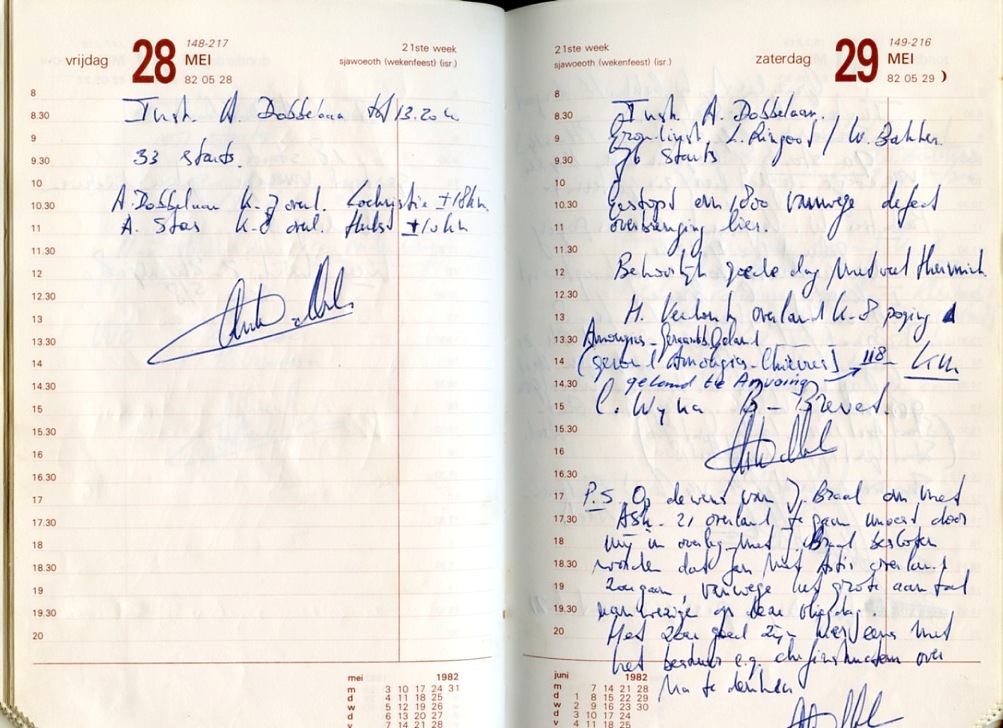 vrijdag 28 148-217
MEI
82 05 28
21ste week
sjawoeoth (wekenfeest) (isr.)
8
8.30
9
9.30
10
10.30
11
11.30
12
12.30
13
13.30
14
14.30
15
15.30
16
16.30
17
17.30
18
18.30
19
19.30
20
Instr. A. Dobbelaar tot 13.20 u
33 starts.
A. Dobbelaar K-7 overl. ± 18 km
A. Stas K-8 overl. Hulst ± 10 km
mei 1982
m 3 10 17 24 31
d 4 11 18 25
w 5 12 19 26
d 6 13 20 27
v 7 14 21 28
21ste week
sjawoeoth (wekenfeest) (isr.)
zaterdag 29 149-216
MEI
82 05 29
8
8.30
9
9.30
10
10.30
11
11.30
12
12.30
13
13.30
14
14.30
15
15.30
16
16.30
17
17.30
18
18.30
19
19.30
20
Instr. A. Dobbelaar.
L. Ringoot / W. Bakker.
76 starts
Gestopt om 1800 vanwege defect
overbrenging lier.
Behoorlijk goede dag met veel thermiek.
H. overland K-8 poging
Amougies - Geraardsbergen
Amougies - Chièvres) → 118 km
geland te Anvaing
C. Wyna B - Brevet.
P.S. Op de wens van J. Braal om met
ASK-21 overland te gaan moest door
mij in overleg met J. Braal besloten
worden dat Jan met Astir overland
zou gaan, vanwege het grote aantal
aanwezige op deze vliegdag.
Het zou goed zijn hier eens met
het bestuur e.g. chefinstructeur over
na te denken
juni 1982
m 7 14 21 28
d 1 8 15 22 29
w 2 9 16 23 30
d 3 10 17 24
v 4 11 18 25